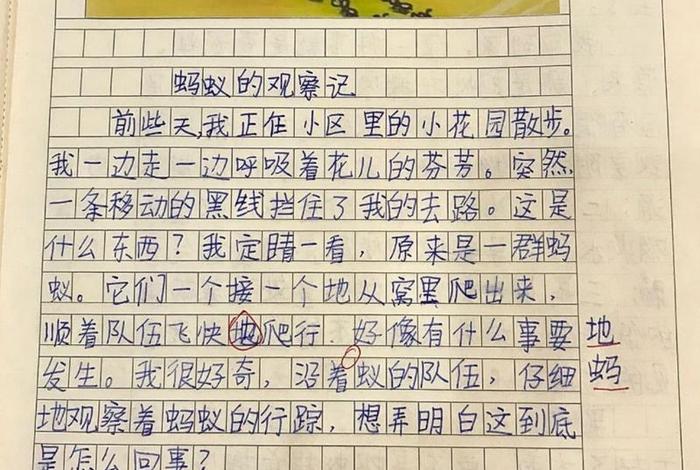 蚂蚁的观察记
前些天,我正在小区里的小花园散步。
我一边走一边呼吸着花儿的芬芳。突然
一条移动的黑线挡住了我的去路。这是
什么东西?我定睛一看,原来是一群蚂
蚁。它们一个接一个地从窝里爬出来,
顺着队伍飞快地爬行.好像有什么事要 地
发生。我很好奇,沿着蚁的队伍,仔细 蚂
地观察着蚂蚁的行踪,想弄明白这到底
是怎么回事?